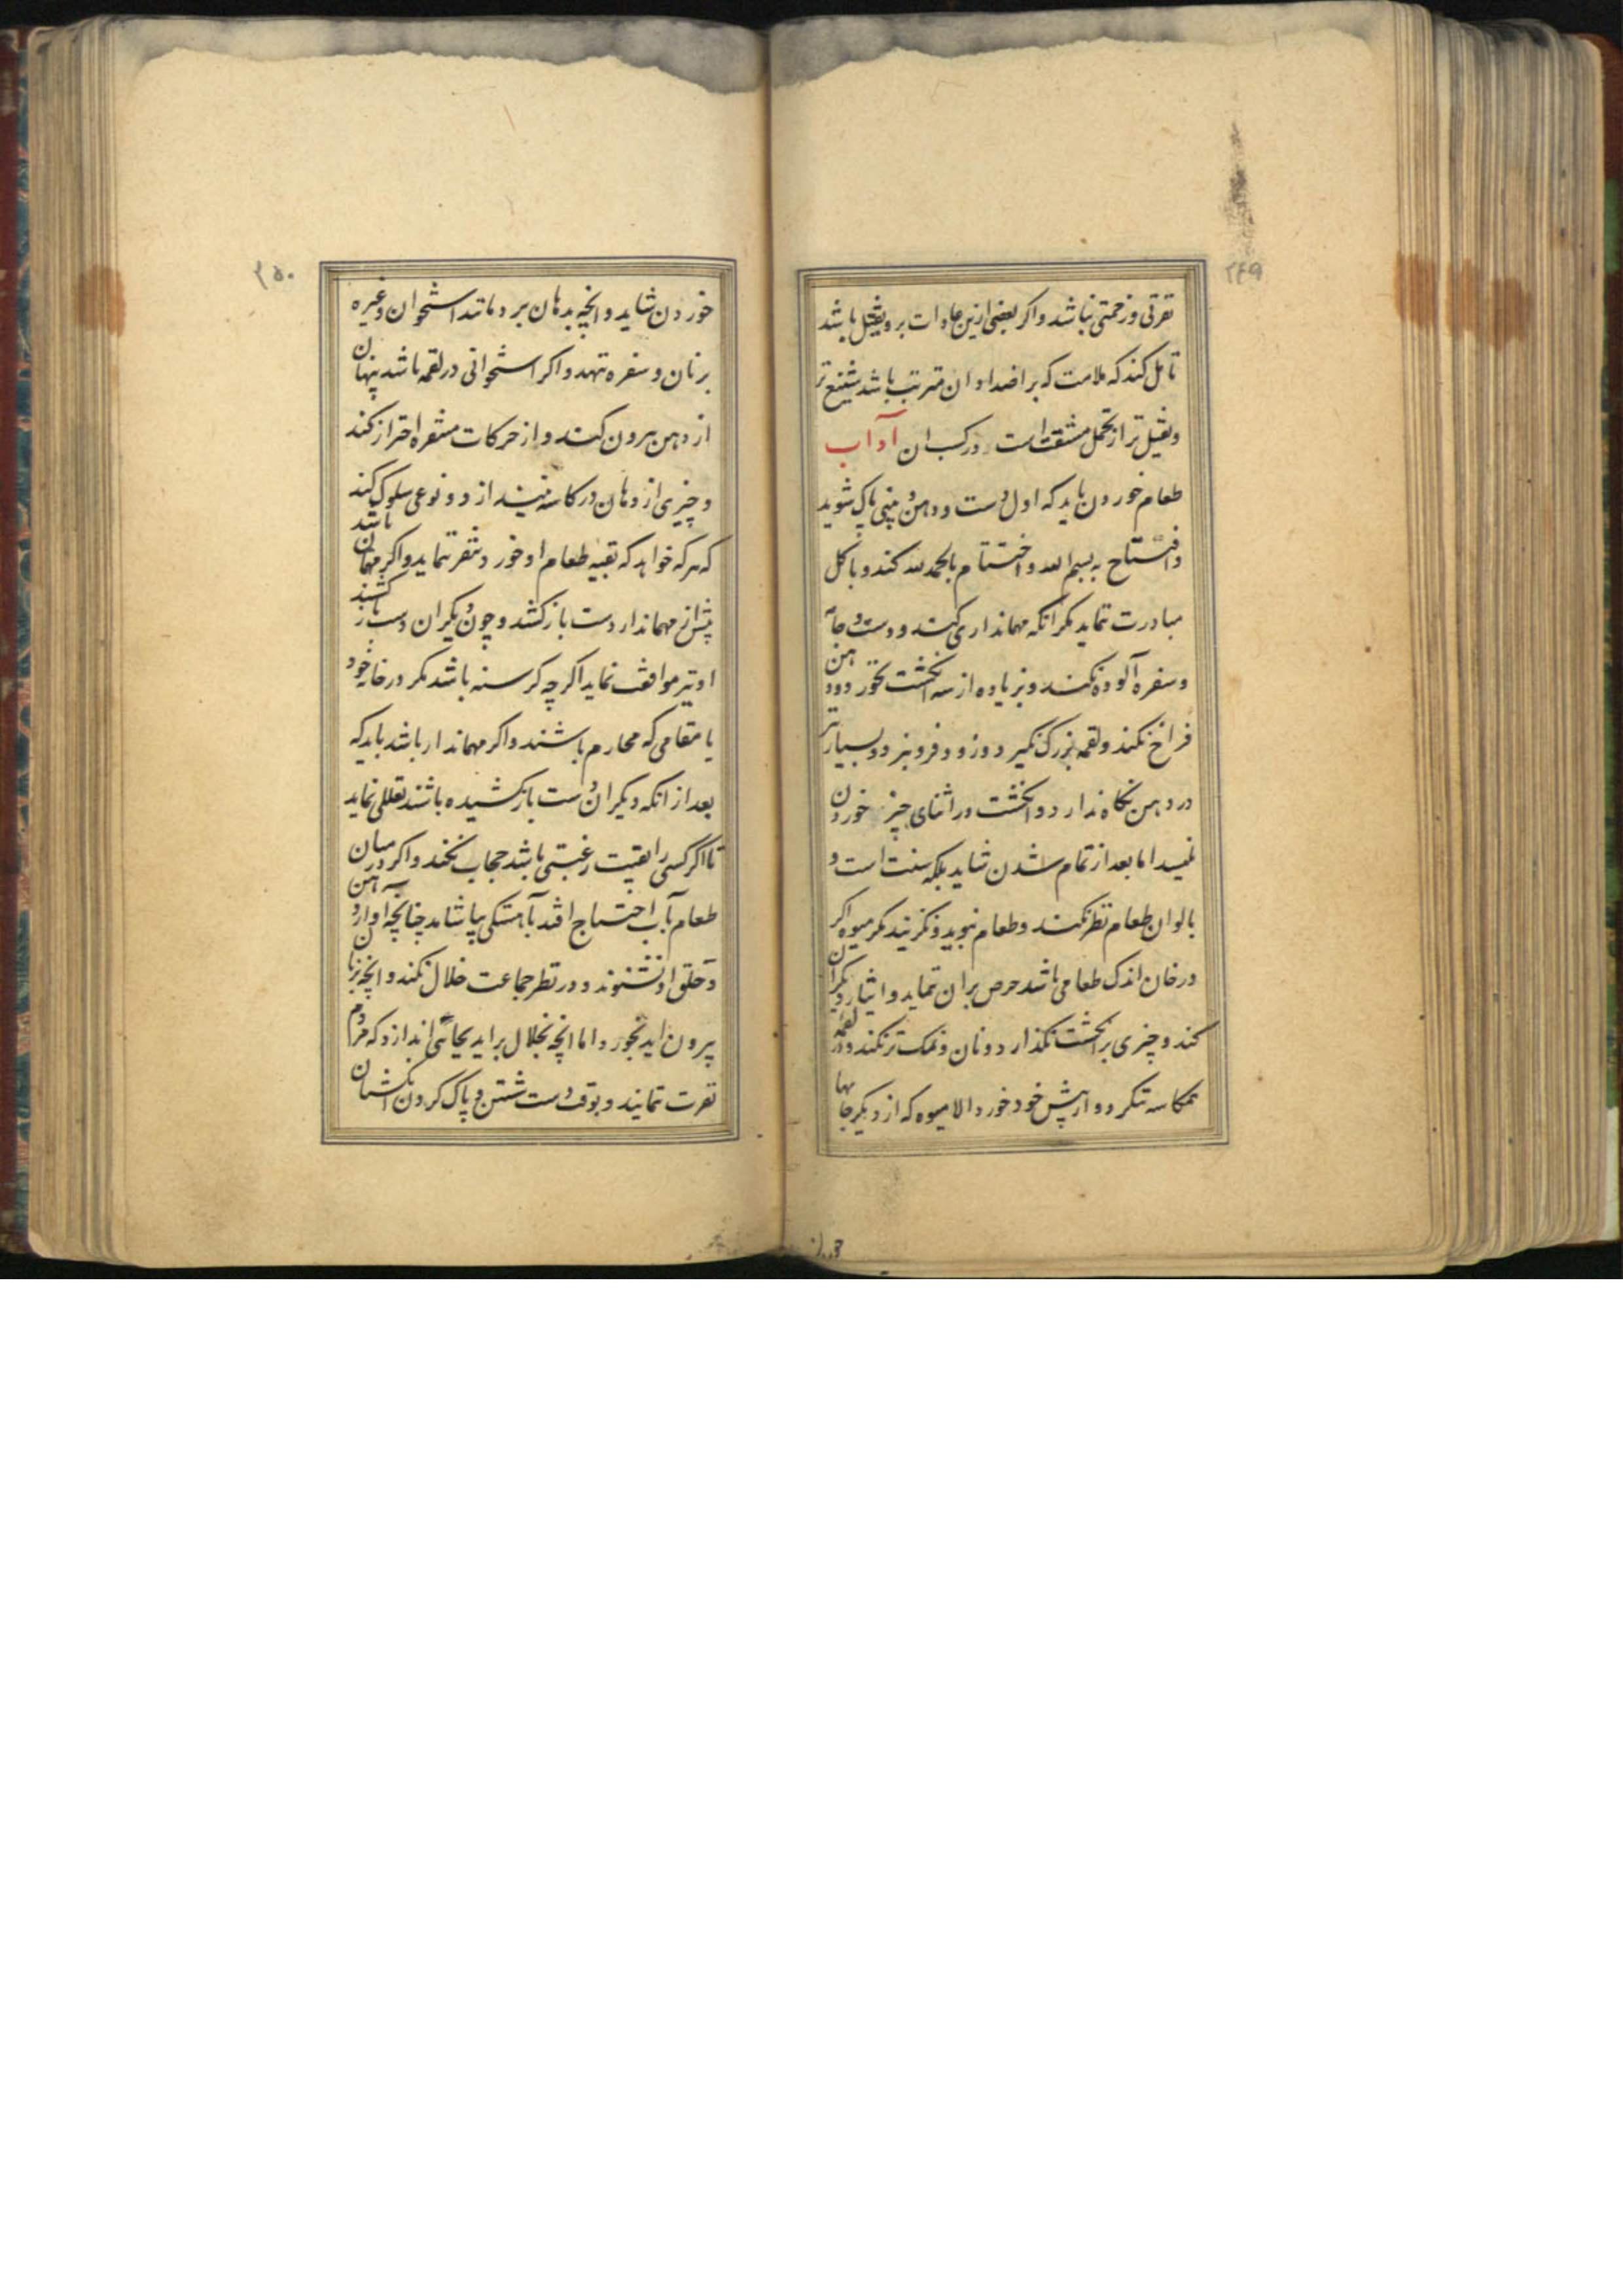 ۲۴۹
نفرتی و زحمتی نباشد و اکر بعضی ازین عادات برو ثقیل باشد
تامل کند که ملامت که بر اضداد ان مترتب باشد شنیع تر
و ثقیل تر از تحمل مشقت است در کسب ان آداب
طعام خوردن باید که اول دست و دهن و بینی پاک شوید
و افتتاح به بسم الله و اختتام بالحمد لله کند و باکل
مبادرت ننماید مکر انکه مهمانداری کند و دست و جامه
و سفره آلوده نکند و بزیاده از سه انکشت نخورد و دهن
فراخ نکند و لقمه بزرک نکیرد و زود فرو نبرد و بسیار نیز
در دهن نکاه ندارد و انکشت در اثنای چیز خوردن
نلیسد اما بعد از تمام شدن شاید بلکه سنت است و
بالوان طعام نظر نکند و طعام نبوید و نکزیند مکر میوه اکر
در خان اندک طعامی باشد حرص بران ننماید و ایثار دیکران
کند و چیزی بر انکشت نکذارد و نان و نمک تر نکند و در لقمه
همکاسه ننکرد و از پیش خود خورد الا میوه که از دیکر جایها
۲۵۰
خوردن شاید و انچه بدهان برد مانند استخوان و غیره
بر نان و سفره ننهد و اکر استخوانی در لقمه باشد پنهان
از دهن بیرون کند و از حرکات منفره احتراز کند
و چیزی از دهان در کاسه نیندازد و نوعی سلوک کند
که هر که خواهد که بقیه طعام او خورد متنفر ننماید و اکر مهمان باشد
پیش از مهماندار دست باز کشد و چون دیکران دست باز کشند
او نیز موافقت نماید اکر چه کرسنه باشد مکر در خانه خود
یا مقامی که محارم باشند و اکر مهماندار باشد باید که
بعد از انکه دیکران دست باز کشیده باشند تعللی نماید
تا اکر کسی را بقیت رغبتی باشد حجاب نکند و اکر در میان
طعام بآب احتیاج افتد باهستکی بیاشامد چنانچه اواز دهن
و حلق او نشنوند و در نظر جماعت خلال نکند و انچه بزبان
بیرون اید بخورد و اما انچه بخلال براید بجائی اندازد که مردم
نفرت ننمایند و بوقت دست شستن و پاک کردن انکشتان